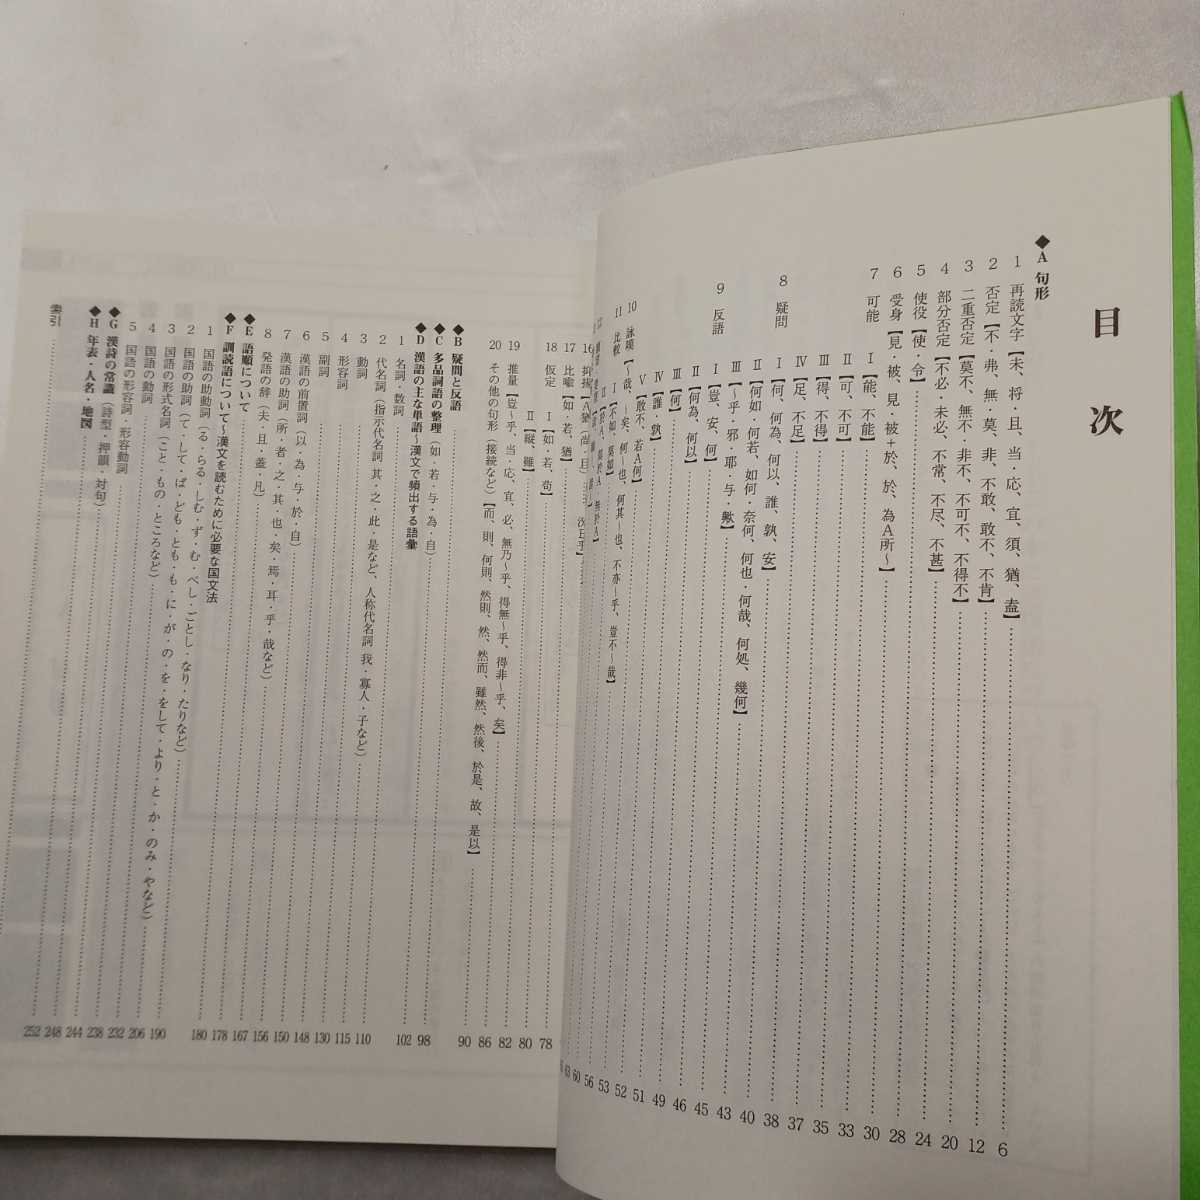 目次
◆A 句形
1 再読文字【未、将・且、当・応、宜、須、猶、盍】 6
2 否定【不・弗、無・莫、非、不敢、敢不、不肯】 12
3 二重否定【莫不、無不・非不、不可不、不得不】 20
4 部分否定【不必・未必、不常、不尽、不甚】 24
5 使役【使・令】 28
6 受身【見・被、見・被＋於、於、為A所～】 30
7 可能 Ⅰ【能、不能】 33
Ⅱ【可、不可】 35
Ⅲ【得、不得】 37
Ⅳ【足、不足】 38
8 疑問 Ⅰ【何、何為、何以、誰、孰、安】 40
Ⅱ【何如、何若、如何・奈何、何也・何哉、何処、幾何】 43
Ⅲ【～乎・邪・耶・与・歟】 45
9 反語 Ⅰ【豈、安、何】 46
Ⅱ【何為、何以】 49
Ⅲ【何】 51
Ⅳ【誰、孰】 52
Ⅴ【敢不、若A何】 53
10 詠嘆【～哉、～矣、何～也、何其～也、不亦～乎、豈不～哉】 56
11 比較 Ⅰ【不如、莫如】 60
17 比喩【如・若、猶】
18 仮定 Ⅰ【如・若、苟】 78
Ⅱ【縦、雖】 80
19 推量【豈～乎、当・応、宜、必、無乃～乎、得無～乎、得非～乎、矣】 82
20 その他の句形（接続など）【而、則、何則、然則、然、然而、雖然、然後、於是、故、是以】 86
◆B 疑問と反語 90
◆C 多品詞語の整理（如・若・与・為・自） 98
◆D 漢語の主な単語～漢文で頻出する語彙
1 名詞・数詞 102
2 代名詞（指示代名詞 其・之・此・是など、人称代名詞 我・寡人・子など） 110
3 動詞 115
4 形容詞 130
5 副詞 148
6 漢語の前置詞（以・為・与・於・自） 150
7 漢語の助詞（所・者・之・其・也・矣・焉・耳・乎・哉など） 156
8 発語の辞（夫・且・蓋・凡） 167
◆E 語順について 178
◆F 訓読語について～漢文を読むために必要な国文法
1 国語の助動詞（る・らる・しむ・ず・む・べし・ごとし・なり・たりなど） 180
2 国語の助詞（て・して・ば・ども・とも・も・に・が・の・を・をして・より・と・か・のみ・やなど） 190
3 国語の形式名詞（こと・もの・ところなど） 206
4 国語の動詞 232
5 国語の形容詞・形容動詞 238
◆G 漢詩の常識（詩型・押韻・対句） 244
◆H 年表・人名・地図 248
索引 252